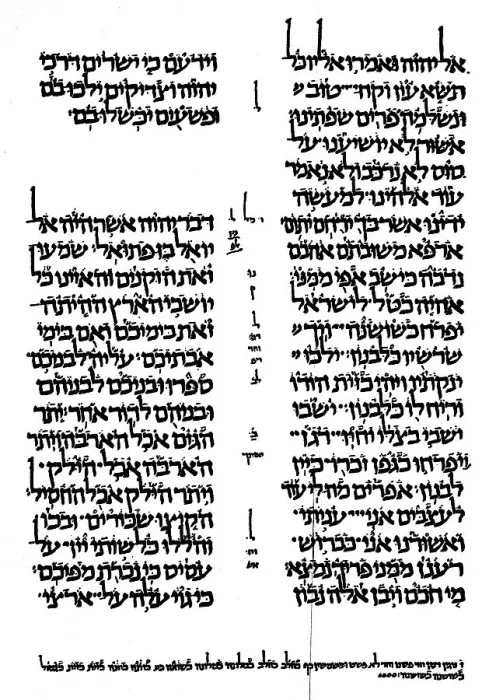 אל יהוה ואמרו אליו כל
תשא עון וקח טוב
ונשלמה פרים שפתינו
אשור לא יושיענו על
סוס לא נרכב ולא נאמר
עוד אלהינו למעשה
ידינו אשר בך ירחם יתום
ארפא משובתם אהבם
נדבה כי שב אפי ממנו
אהיה כטל לישראל
יפרח כשושנה ויך
שרשיו כלבנון ילכו
ינקתיו ויהי כזית הודו
וריח לו כלבנון ישבו
ישבי בצלו יחיו דגן
ויפרחו כגפן זכרו כיין
לבנון אפרים מה לי עוד
לעצבים אני עניתי
ואשורנו אני כברוש
רענן ממני פריך נמצא
מי חכם ויבן אלה נבון
וידעם כי ישרים דרכי
יהוה וצדיקים ילכו בם
ופשעים יכשלו בם
דבר יהוה אשר היה אל
יואל בן פתואל שמעו
זאת הזקנים והאזינו כל
יושבי הארץ ההיתה
זאת בימיכם ואם בימי
אבתיכם עליה לבניכם
ספרו ובניכם לבניהם
ובניהם לדור אחר יתר
הגזם אכל הארבה ויתר
הארבה אכל הילק
ויתר הילק אכל החסיל
הקיצו שכורים ובכו
והללו כל שותי יין על
עסיס כי נכרת מפיכם
כי גוי עלה על ארצי